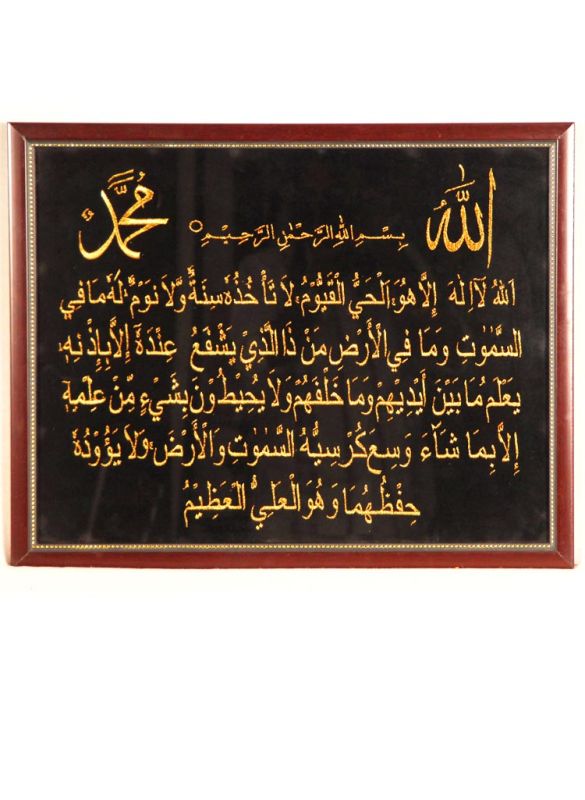 الله
بِسْمِ اللهِ الرَّحْمٰنِ الرَّحِيْمِ
مُحَمَّد
اَللهُ لَآ اِلٰهَ اِلَّا هُوَ اَلْحَيُّ الْقَيُّوْمُ لَا تَأْخُذُهٗ سِنَةٌ وَّلَا نَوْمٌ لَهٗ مَا فِي
السَّمٰوٰتِ وَمَا فِي الْأَرْضِ مَنْ ذَا الَّذِيْ يَشْفَعُ عِنْدَهٗ اِلَّا بِاِذْنِهٖ
يَعْلَمُ مَا بَيْنَ أَيْدِيْهِمْ وَمَا خَلْفَهُمْ وَلَا يُحِيْطُوْنَ بِشَيْءٍ مِّنْ عِلْمِهٖ
اِلَّا بِمَا شَآءَ وَسِعَ كُرْسِيُّهُ السَّمٰوٰتِ وَالْأَرْضَ وَلَا يَؤُوْدُهٗ
حِفْظُهُمَا وَهُوَ الْعَلِيُّ الْعَظِيْمُ